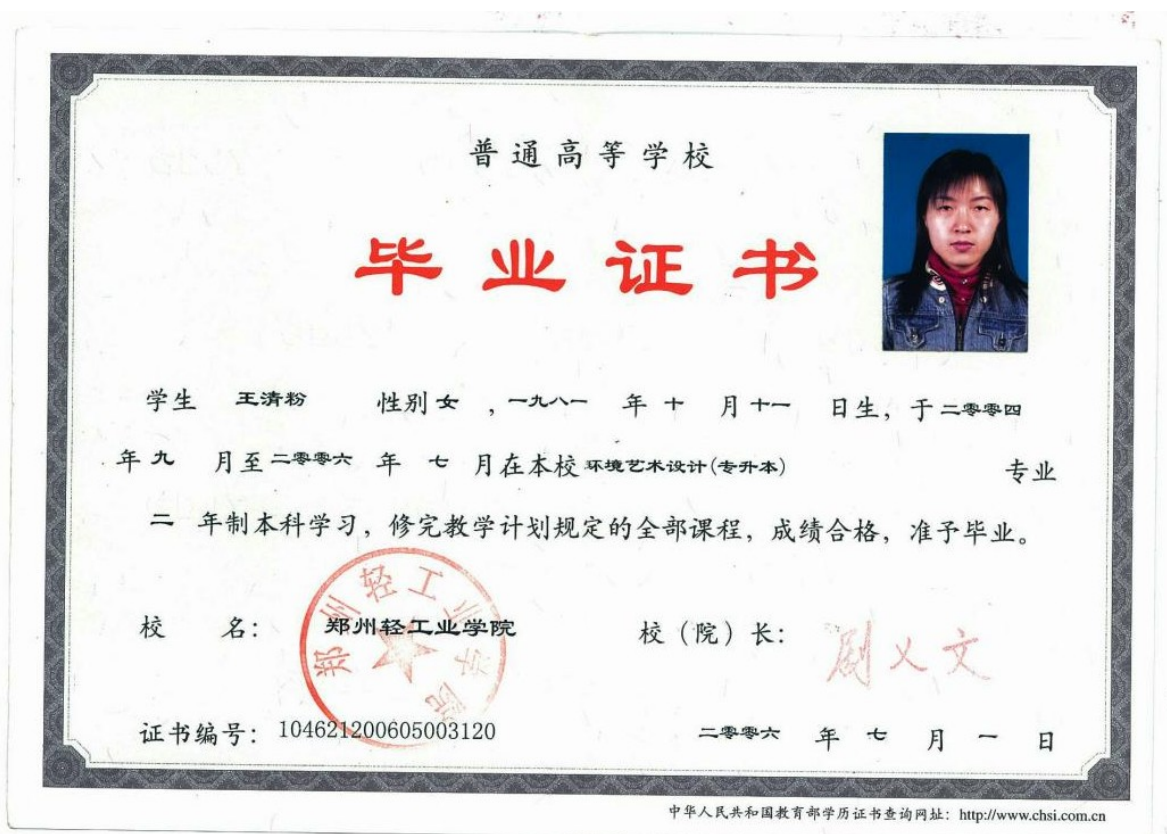 普通高等学校
毕业证书
学生 王清粉 性别 女 ，一九八一 年 十 月 十一 日生，于 二零零四
年 九 月至 二零零六 年 七 月在本校 环境艺术设计(专升本) 专业
二 年制本科学习，修完教学计划规定的全部课程，成绩合格，准予毕业。
郑州轻工业学院
校 名： 郑州轻工业学院 校（院）长： 剧义文
证书编号： 104621200605003120 二零零六 年 七 月 一 日
中华人民共和国教育部学历证书查询网址：http://www.chsi.com.cn